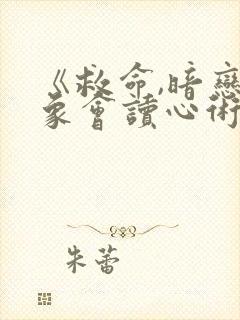 《救命,暗戀
象會讀心術
朱蕾